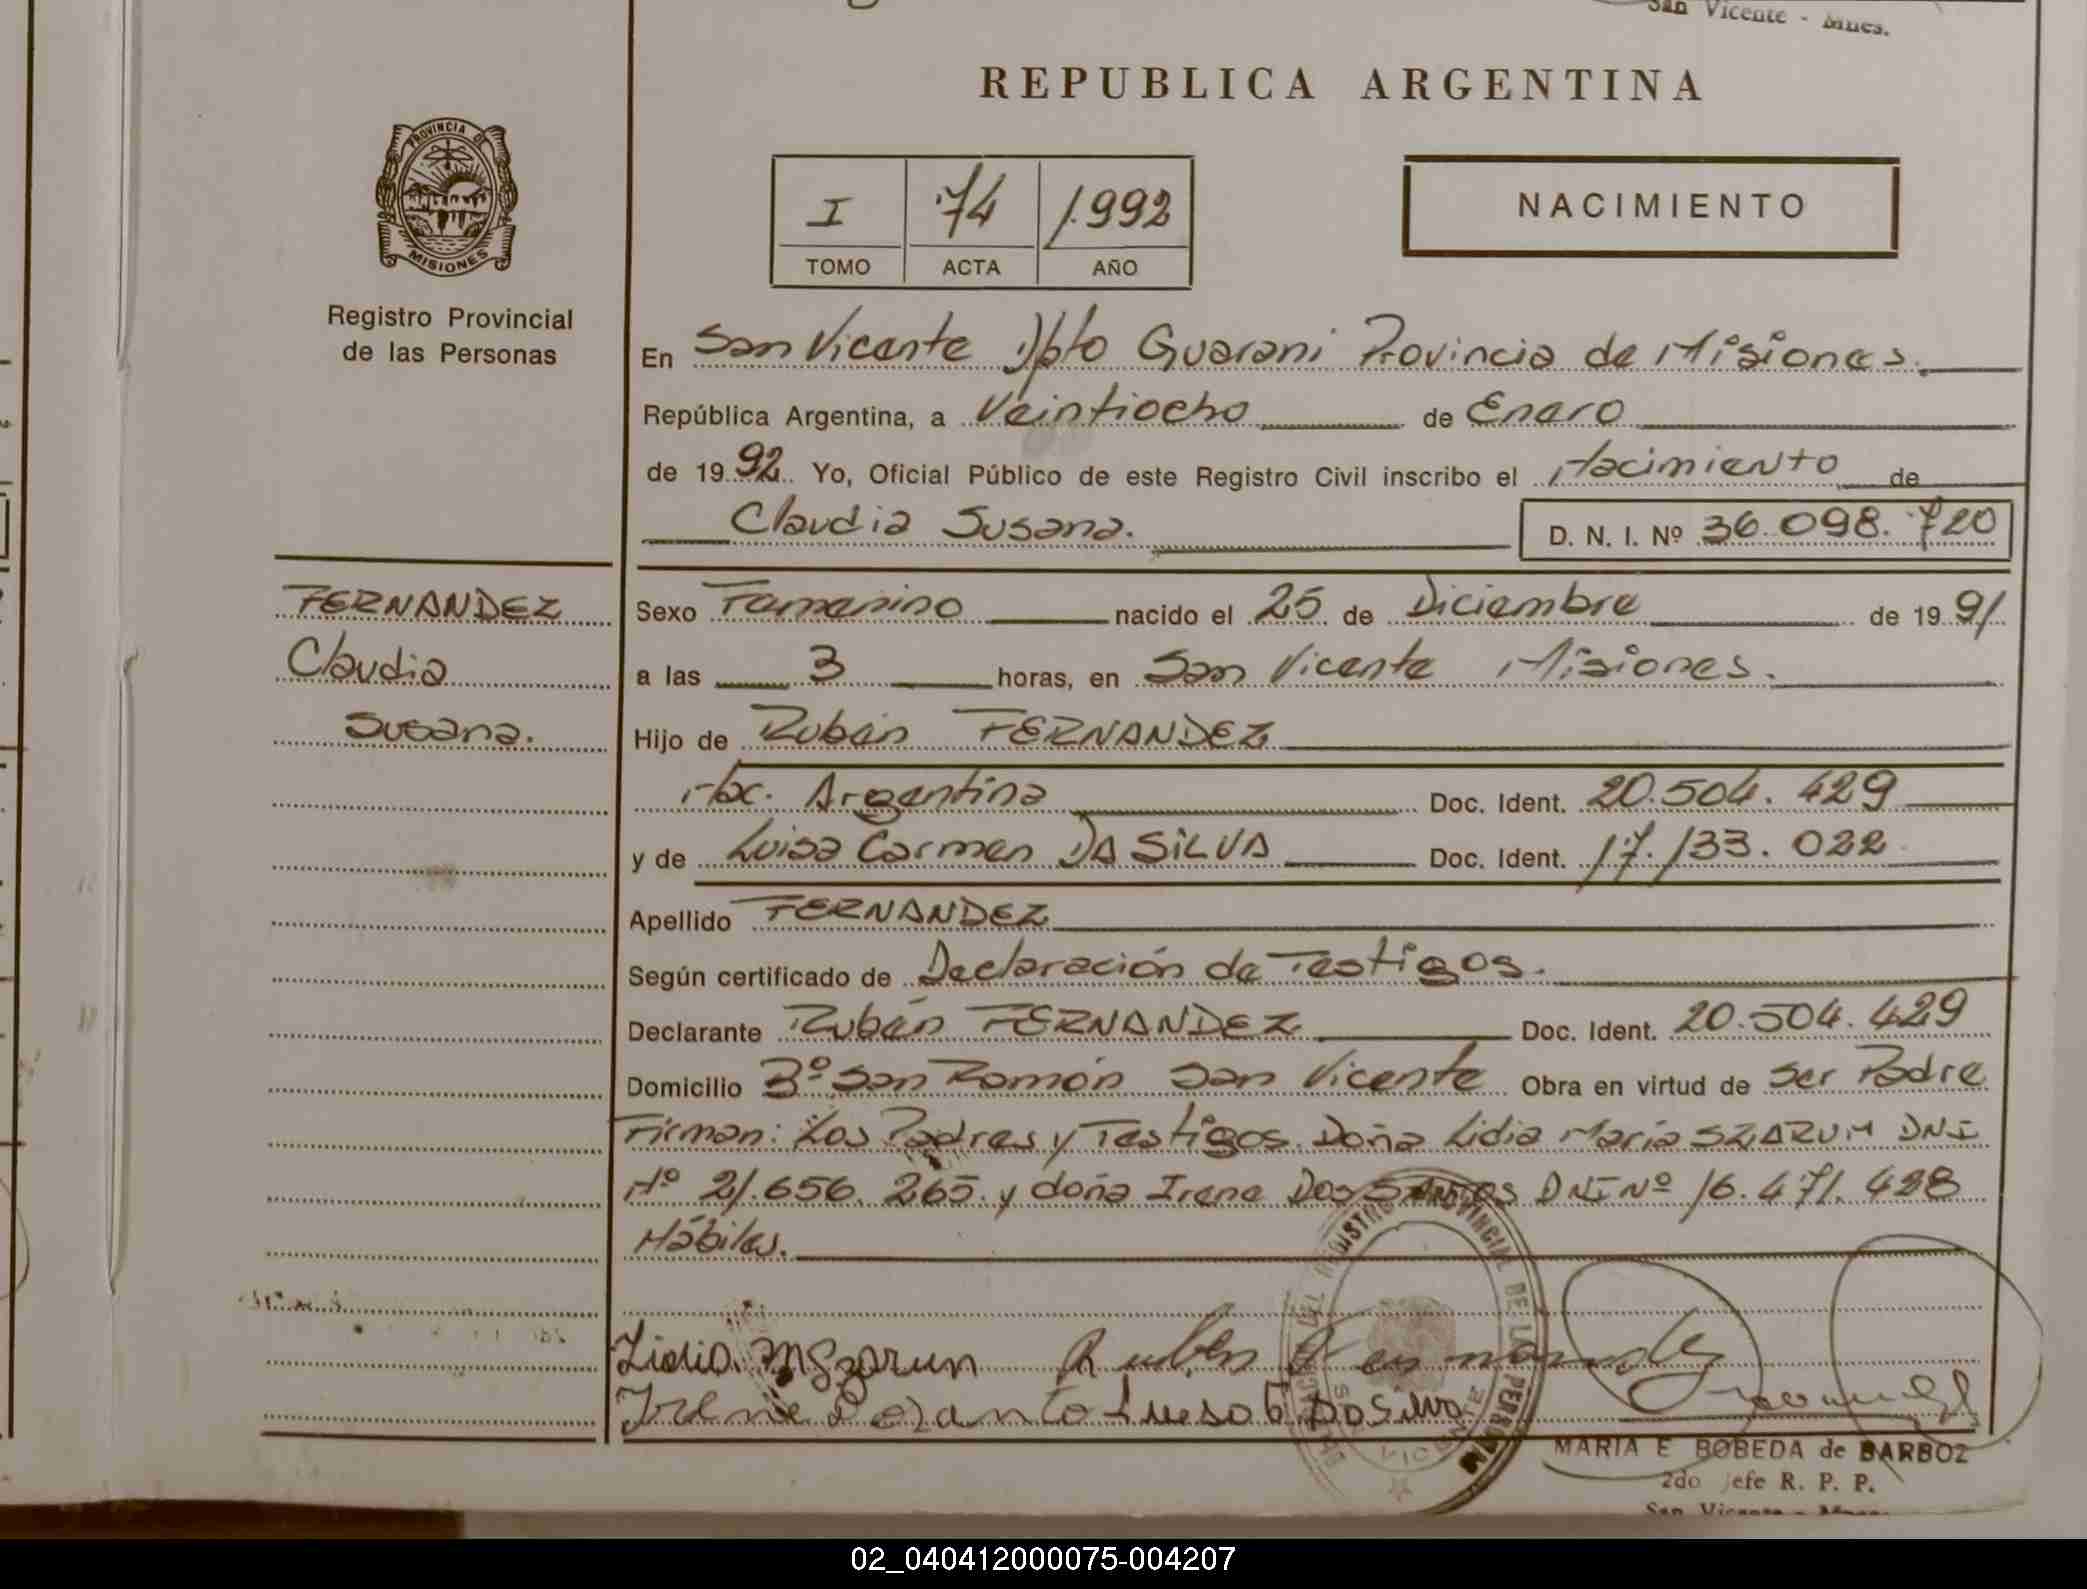 San Vicente - Mnes.
REPUBLICA ARGENTINA
PROVINCIA DE
MISIONES
Registro Provincial
de las Personas
I 74 1.992
TOMO ACTA AÑO
NACIMIENTO
En San Vicente Dpto Guarani Provincia de Misiones.
República Argentina, a Veintiocho de Enero
de 1992 Yo, Oficial Público de este Registro Civil inscribo el Nacimiento de
Claudia Susana. D. N. I. Nº 36.098.720
FERNANDEZ
Claudia
Susana.
Sexo Femenino nacido el 25 de Diciembre de 1991
a las 3 horas, en San Vicente Misiones.
Hijo de Rubén FERNANDEZ
Nac. Argentina Doc. Ident. 20.504.429
y de Luisa Carmen DA SILVA Doc. Ident. 17.133.022
Apellido FERNANDEZ
Según certificado de Declaración de Testigos.
Declarante Rubén FERNANDEZ Doc. Ident. 20.504.429
Domicilio Bº San Ramón San Vicente Obra en virtud de Ser Padre
Firman: Los Padres y Testigos. Doña Lidia María SZARUM DNI
Nº 21.656.265. y doña Irene DOS SANTOS DNI Nº 16.471.428
Hábiles.
Lidia M Szarun Ruben Fernandez
Irene Dozanto Luisa C Da Silva
MARIA E BOBEDA de BARBOZ
2do Jefe R. P. P.
San Vicente - Mnes.
02_040412000075-004207